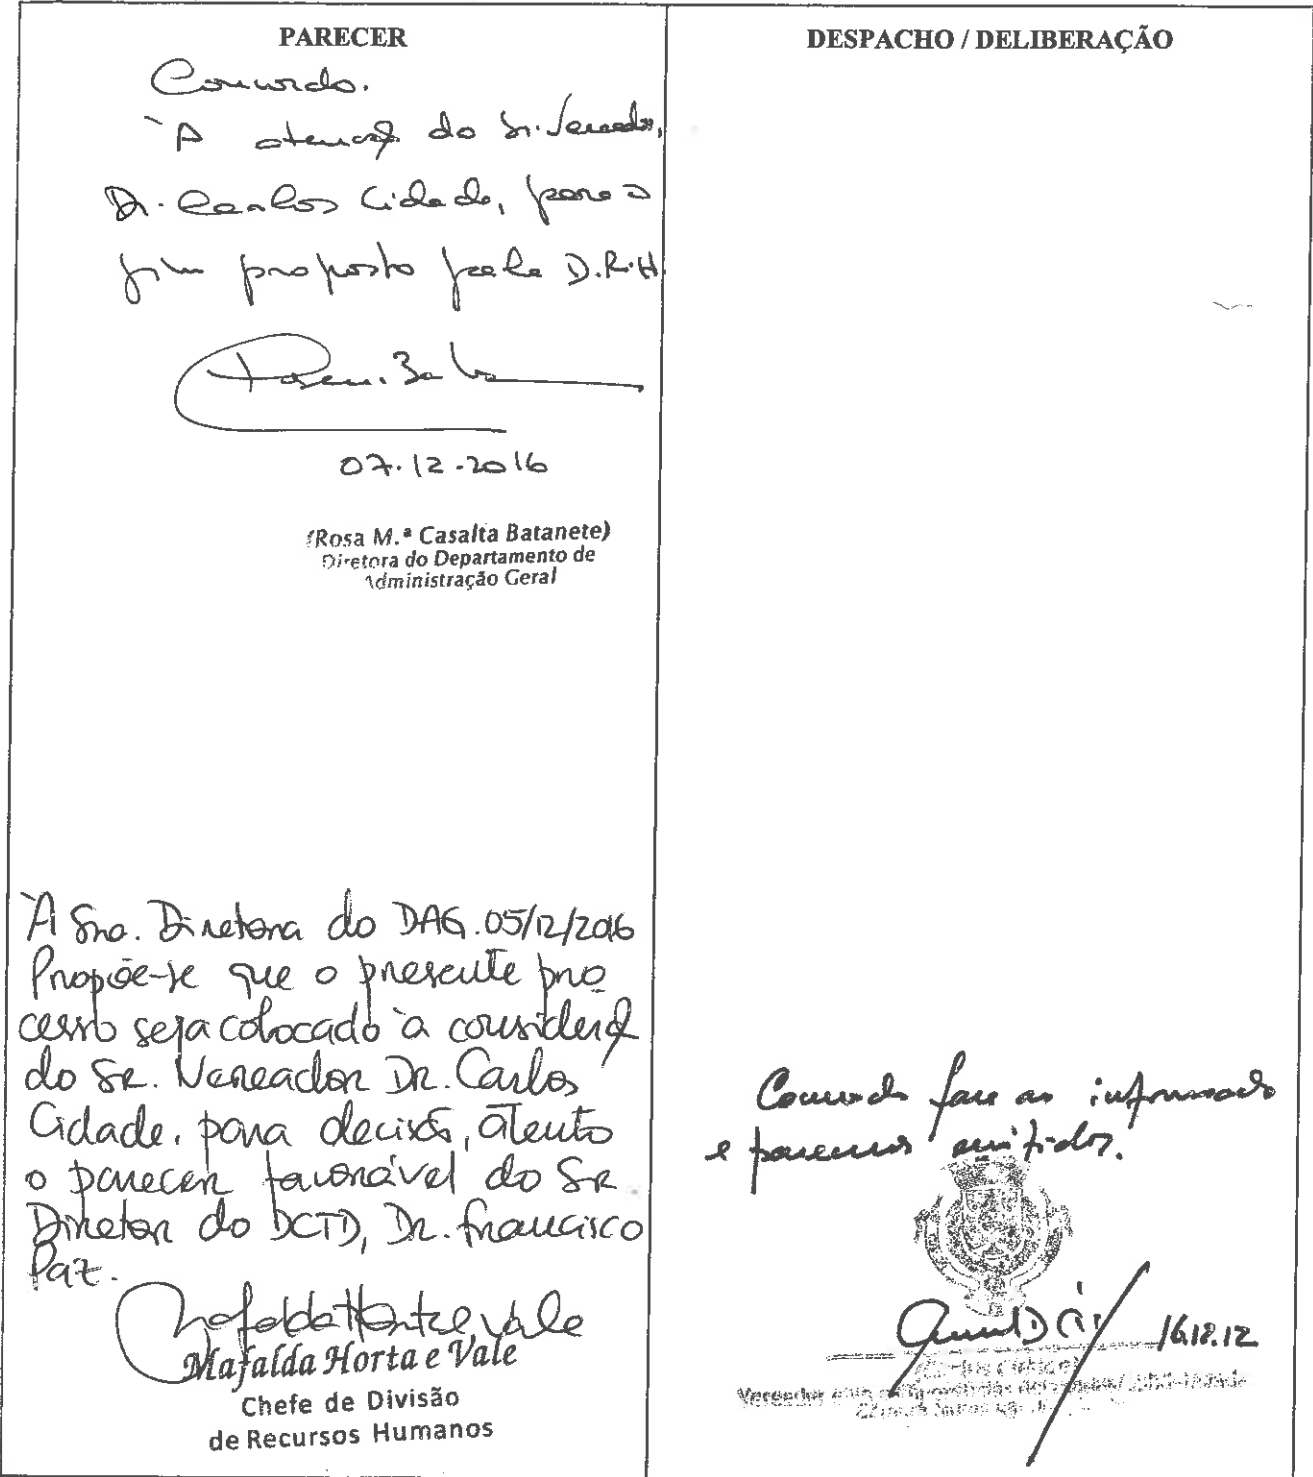 PARECER
Concordo.
À atenção do Sr. Vereador,
Dr. Carlos Cidade, para o
fim proposto pela D.R.H.
07.12.2016
(Rosa M.ª Casalta Batanete)
Diretora do Departamento de
Administração Geral
À Sra. Diretora do DAG. 05/12/2016
Propõe-se que o presente pro
cesso seja colocado à consideração
do Sr. Vereador Dr. Carlos
Cidade, para decisão, atento
o parecer favorável do Sr
Diretor do DCTD, Dr. Francisco
Paz.
Mafalda Horta e Vale
Mafalda Horta e Vale
Chefe de Divisão
de Recursos Humanos
DESPACHO / DELIBERAÇÃO
Concordo face as informações
e pareceres emitidos.
16.12.12
(Carlos Cidade)
Vereador com